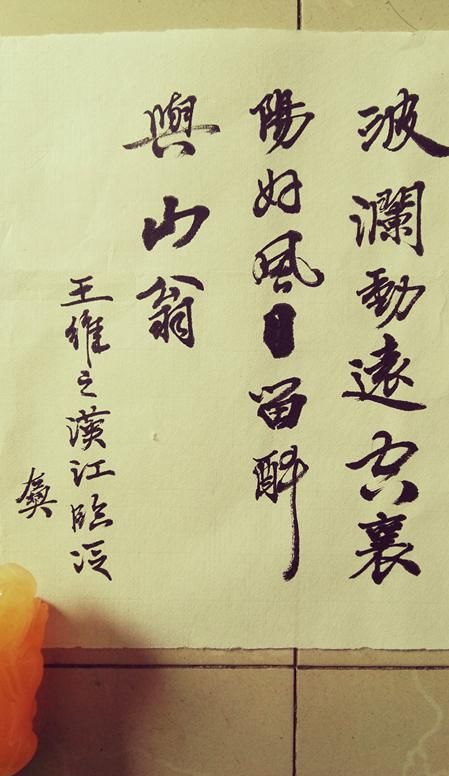 波瀾動遠空襄
陽好風日留醉
與山翁
王維之漢江臨泛